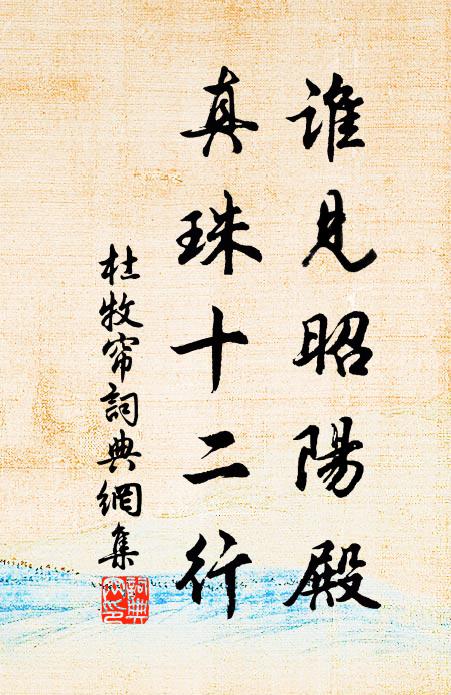 誰見昭陽殿
真珠十二行
杜牧帘詞典網集